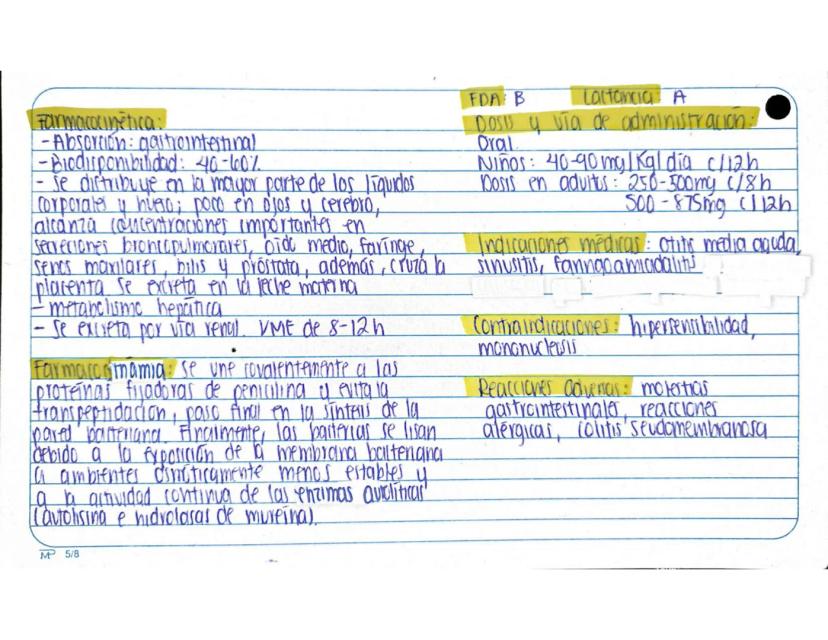 Farmacocinética:
- Absorción: gastrointestinal
- Biodisponibilidad: 40-60%
- se distribuye en la mayor parte de los líquidos
corporales y hueso; poco en ojos y cerebro,
alcanza concentraciones importantes en
secreciones broncopulmonares, oido medio, faringe,
senos maxilares, bilis y próstata, además, cruza la
placenta se excreta en la leche materna
- metabolismo hepática
- Se excreta por vía renal. VME de 8-12h
Farmacodinamia: se une covalentemente a las
proteínas fijadoras de penicilina y evita la
transpeptidación, paso final en la síntesis de la
pared bacteriana. Finalmente, las bacterias se lisan
debido a la exposición de la membrana bacteriana
a ambientes osmóticamente menos estables y
a la actividad continua de las enzimas autolíticas
(autolisina e hidrolasas de mureína).
MP 5/8
FDA: B Lactancia: A
Dosis y vía de administración:
Oral
Niños: 40-90 mg/Kg/día c/12h
Dosis en adultos: 250-500mg c/8h
500-875mg c/12h
Indicaciones médicas: otitis media aguda,
sinusitis, faringoamigdalitis
Contraindicaciones: hipersensibilidad,
mononucleosis
Reacciones adversas: molestias
gastrointestinales, reacciones
alérgicas, colitis seudomembranosa